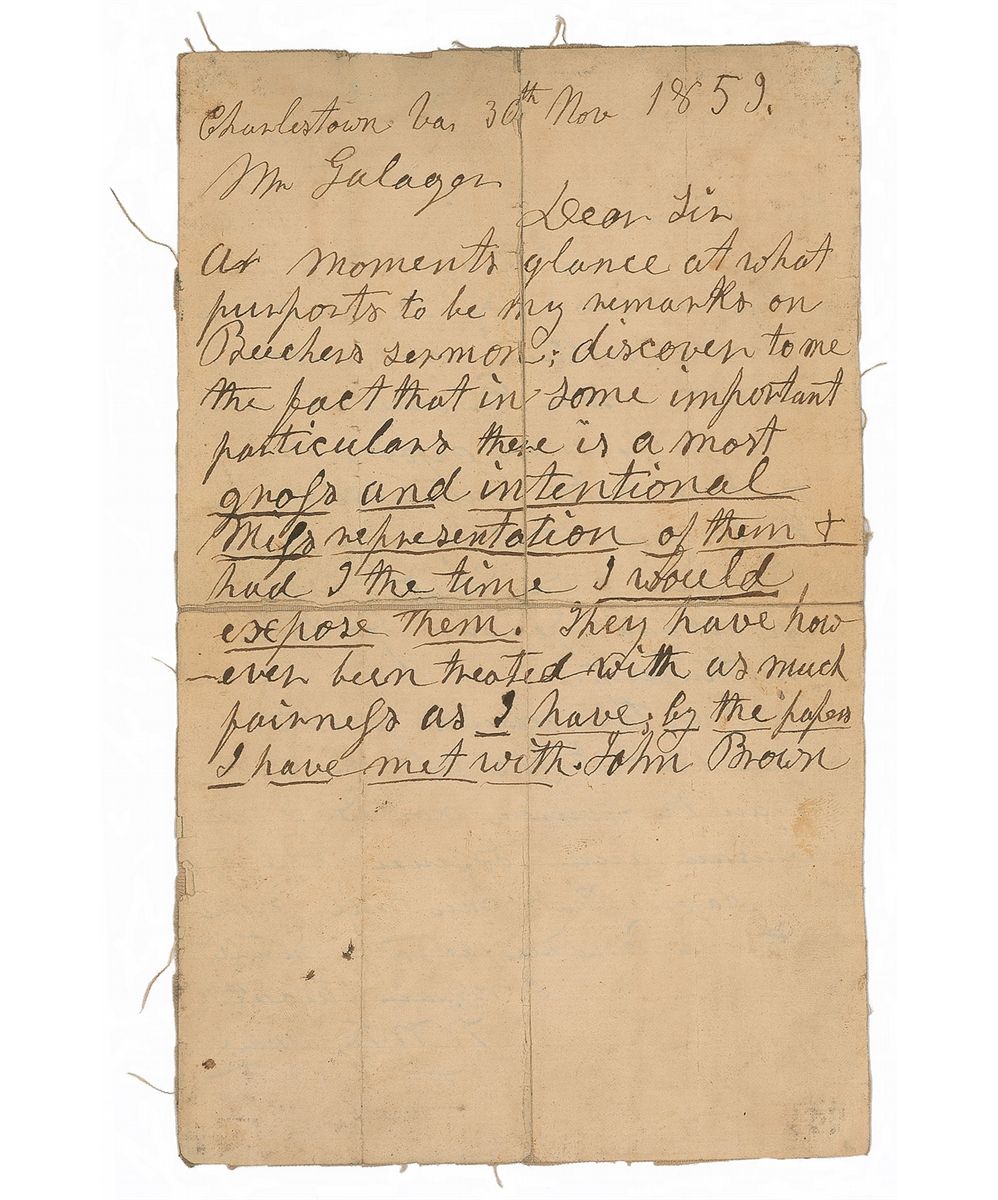 Charlestown Va, 30th Nov 1859.
Mr Galager
Dear Sir
Ar moments glance at what
purports to be my remarks on
Beechers sermon; discover to me
the fact that in some important
particulars there is a most
gross and intentional
Miss representation of them &
had I the time I would
expose them. They have how
-ever been treated with as much
fairness as I have; by the papers
I have met with. John Brown